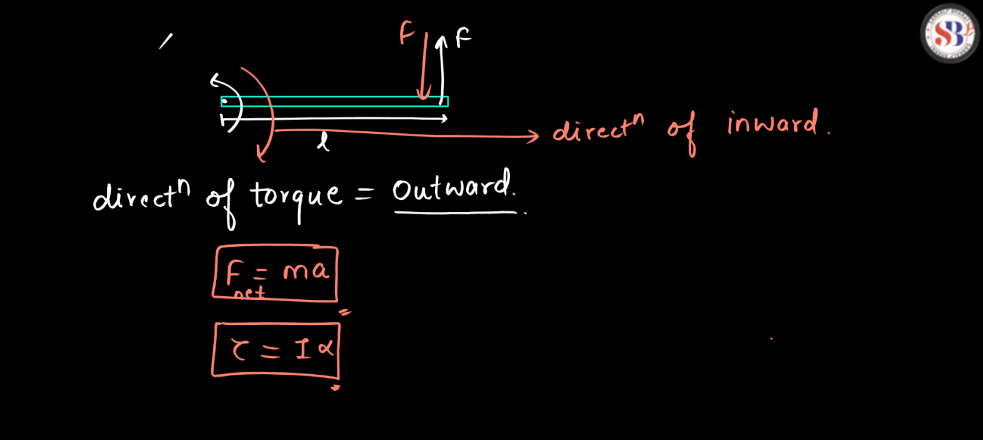 F F
l
directⁿ of inward.
directⁿ of torque = outward.
F_net = ma
τ = Iα
SB